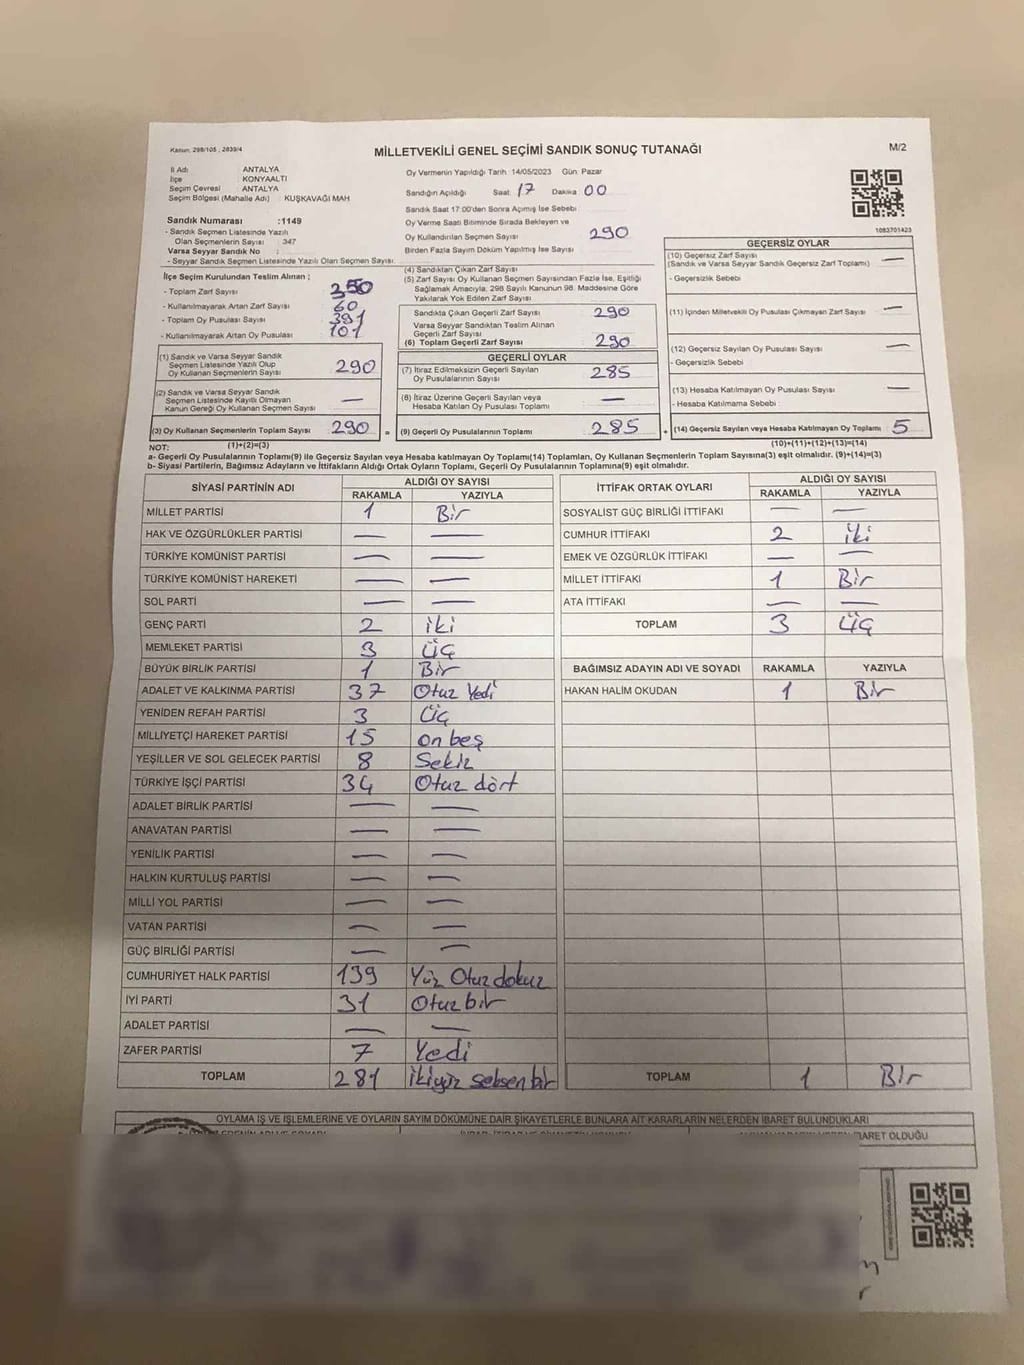 Kanun: 298/105 ; 2839/4
MİLLETVEKİLİ GENEL SEÇİMİ SANDIK SONUÇ TUTANAĞI
M/2
İl Adı ANTALYA
İlçe KONYAALTI
Seçim Çevresi ANTALYA
Seçim Bölgesi (Mahalle Adı) KUŞKAVAĞI MAH
Sandık Numarası :1149
- Sandık Seçmen Listesinde Yazılı
Olan Seçmenlerin Sayısı : 347
Varsa Seyyar Sandık No :
- Seyyar Sandık Seçmen Listesinde Yazılı Olan Seçmen Sayısı
Oy Vermenin Yapıldığı Tarih 14/05/2023 Gün Pazar
Sandığın Açıldığı Saat 17 Dakika 00
Sandık Saat 17:00'dan Sonra Açılmış İse Sebebi
Oy Verme Saati Bitiminde Sırada Bekleyen ve
Oy Kullandırılan Seçmen Sayısı 290
Birden Fazla Sayım Döküm Yapılmış İse Sayısı
1083701423
İlçe Seçim Kurulundan Teslim Alınan ;
- Toplam Zarf Sayısı 350
- Kullanılmayarak Artan Zarf Sayısı 60
- Toplam Oy Pusulası Sayısı 391
- Kullanılmayarak Artan Oy Pusulası 101
(1) Sandık ve Varsa Seyyar Sandık
Seçmen Listesinde Yazılı Olup
Oy Kullanan Seçmenlerin Sayısı 290
(2) Sandık ve Varsa Seyyar Sandık
Seçmen Listesinde Kayıtlı Olmayan
Kanun Gereği Oy Kullanan Seçmen Sayısı —
(3) Oy Kullanan Seçmenlerin Toplam Sayısı 290 =
(4) Sandıktan Çıkan Zarf Sayısı
(5) Zarf Sayısı Oy Kullanan Seçmen Sayısından Fazla İse, Eşitliği
Sağlamak Amacıyla, 298 Sayılı Kanunun 98. Maddesine Göre
Yakılarak Yok Edilen Zarf Sayısı
Sandıkta Çıkan Geçerli Zarf Sayısı 290
Varsa Seyyar Sandıktan Teslim Alınan
Geçerli Zarf Sayısı
(6) Toplam Geçerli Zarf Sayısı 290
GEÇERLİ OYLAR
(7) İtiraz Edilmeksizin Geçerli Sayılan
Oy Pusulalarının Sayısı 285
(8) İtiraz Üzerine Geçerli Sayılan veya
Hesaba Katılan Oy Pusulası Toplamı —
(9) Geçerli Oy Pusulalarının Toplamı 285 +
GEÇERSİZ OYLAR
(10) Geçersiz Zarf Sayısı
(Sandık ve Varsa Seyyar Sandık Geçersiz Zarf Toplamı) —
- Geçersizlik Sebebi :
(11) İçinden Milletvekili Oy Pusulası Çıkmayan Zarf Sayısı —
(12) Geçersiz Sayılan Oy Pusulası Sayısı —
- Geçersizlik Sebebi :
(13) Hesaba Katılmayan Oy Pusulası Sayısı —
- Hesaba Katılmama Sebebi :
(14) Geçersiz Sayılan veya Hesaba Katılmayan Oy Toplamı 5
NOT: (1)+(2)=(3) (10)+(11)+(12)+(13)=(14)
a- Geçerli Oy Pusulalarının Toplamı(9) ile Geçersiz Sayılan veya Hesaba katılmayan Oy Toplamı(14) Toplamları, Oy Kullanan Seçmenlerin Toplam Sayısına(3) eşit olmalıdır. (9)+(14)=(3)
b- Siyasi Partilerin, Bağımsız Adayların ve İttifakların Aldığı Ortak Oyların Toplamı, Geçerli Oy Pusulalarının Toplamına(9) eşit olmalıdır.
SİYASİ PARTİNİN ADI ALDIĞI OY SAYISI
RAKAMLA YAZIYLA
MİLLET PARTİSİ 1 Bir
HAK VE ÖZGÜRLÜKLER PARTİSİ — —
TÜRKİYE KOMÜNİST PARTİSİ — —
TÜRKİYE KOMÜNİST HAREKETİ — —
SOL PARTİ — —
GENÇ PARTİ 2 iki
MEMLEKET PARTİSİ 3 üç
BÜYÜK BİRLİK PARTİSİ 1 Bir
ADALET VE KALKINMA PARTİSİ 37 Otuz Yedi
YENİDEN REFAH PARTİSİ 3 üç
MİLLİYETÇİ HAREKET PARTİSİ 15 on beş
YEŞİLLER VE SOL GELECEK PARTİSİ 8 Sekiz
TÜRKİYE İŞÇİ PARTİSİ 34 Otuz dört
ADALET BİRLİK PARTİSİ — —
ANAVATAN PARTİSİ — —
YENİLİK PARTİSİ — —
HALKIN KURTULUŞ PARTİSİ — —
MİLLİ YOL PARTİSİ — —
VATAN PARTİSİ — —
GÜÇ BİRLİĞİ PARTİSİ — —
CUMHURİYET HALK PARTİSİ 139 Yüz Otuz dokuz
İYİ PARTİ 31 Otuz bir
ADALET PARTİSİ — —
ZAFER PARTİSİ 7 Yedi
TOPLAM 281 ikiyüz seksen bir
İTTİFAK ORTAK OYLARI ALDIĞI OY SAYISI
RAKAMLA YAZIYLA
SOSYALİST GÜÇ BİRLİĞİ İTTİFAKI — —
CUMHUR İTTİFAKI 2 iki
EMEK VE ÖZGÜRLÜK İTTİFAKI — —
MİLLET İTTİFAKI 1 Bir
ATA İTTİFAKI — —
TOPLAM 3 üç
BAĞIMSIZ ADAYIN ADI VE SOYADI RAKAMLA YAZIYLA
HAKAN HALİM OKUDAN 1 Bir
TOPLAM 1 Bir
OYLAMA İŞ VE İŞLEMLERİNE VE OYLARIN SAYIM DÖKÜMÜNE DAİR ŞİKAYETLERLE BUNLARA AİT KARARLARIN NELERDEN İBARET BULUNDUKLARI
İBARET OLDUĞU